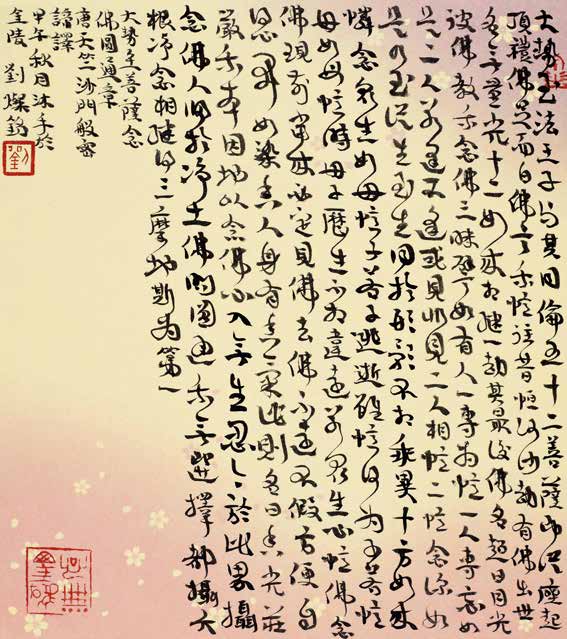 大勢至法王子与其同倫五十二菩薩即從座起
頂禮佛足而白佛言我憶往昔恒河沙劫有佛出世
名無量光十二如來相繼一劫其最後佛名超日月光
彼佛教我念佛三昧譬如有人一專為憶一人專忘如
是二人若逢不逢或見非見二人相憶二憶念深如
是乃至從生至生同於形影不相乖異十方如來
憐念眾生如母憶子若子逃逝雖憶何為子若憶
母如母憶時母子歷生不相違遠若眾生心憶佛念
佛現前當來必定見佛去佛不遠不假方便自
得心開如染香人身有香氣此則名曰香光莊
嚴我本因地以念佛心入無生忍今於此界攝
念佛人歸於淨土佛問圓通我無選擇都攝六
根淨念相繼得三摩地斯為第一
大勢至菩薩念
佛圓通章
唐天竺沙門般密
諦譯
甲午秋月沐手於
金陵 劉燦銘
劉